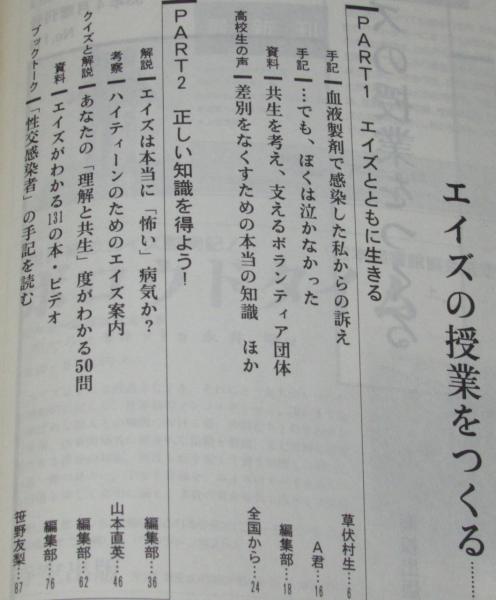 エイズの授業をつくる………
PART1 エイズとともに生きる
手記 血液製剤で感染した私からの訴え 草伏村生…6
手記 …でも、ぼくは泣かなかった A君…16
資料 共生を考え、支えるボランティア団体 編集部…18
高校生の声 差別をなくすための本当の知識 ほか 全国から…24
PART2 正しい知識を得よう！
解説 エイズは本当に「怖い」病気か？ 編集部…36
考察 ハイティーンのためのエイズ案内 山本直英…46
クイズと解説 あなたの「理解と共生」度がわかる50問 編集部…62
資料 エイズがわかる131の本・ビデオ 編集部…76
ブックトーク 「性交感染者」の手記を読む 笹野友梨…87